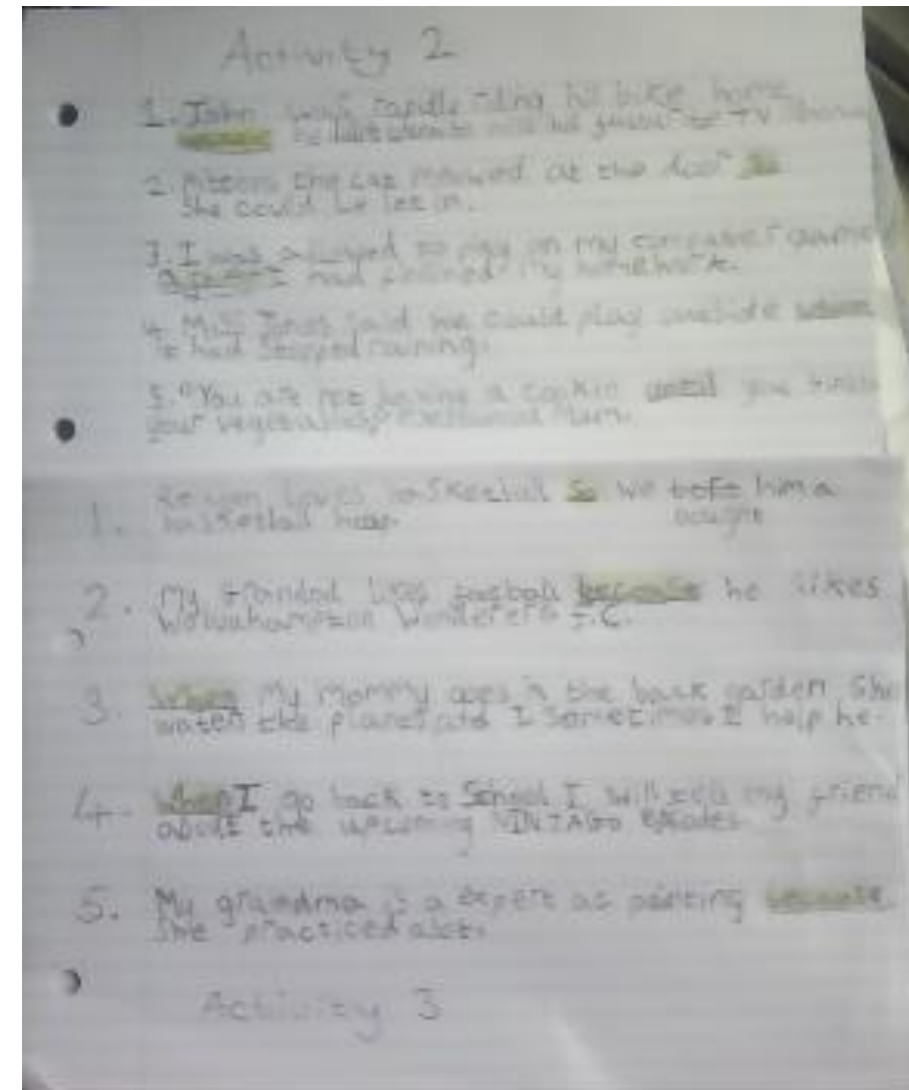 Activity 2
1. John was rapidly riding his bike home
he his favourite TV show
2. the cat meowed at the door so
She could be let in.
3. I was allowed to play on my computer game
had finished my homework.
4. Miss Jones said we could play outside when
it had stopped raining.
5. "You are not having a cookie until you finish
your vegetables," exclaimed Mum.
1. loves basketball so we bofe him a
basketball hoop. bought
2. My Grandad likes football because he likes
Wanderers F.C.
3. When My Mommy goes in the back garden She
water the plants and I sometimes I help her
4. When I go back to School I will tell my friend
about the upcoming
5. My grandma is a expert at painting because
She practiced alot.
Activity 3